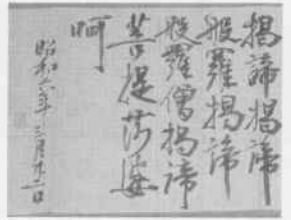 揭諦揭諦
般羅揭諦
般羅僧揭諦
菩提莎婆
呵
昭和六年三月廿一日